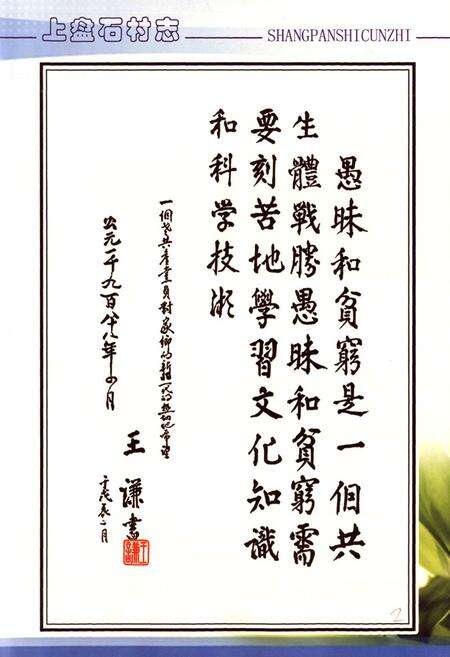 上盘石村志
SHANGPANSHICUNZHI
愚昧和貧窮是一個共
生體戰勝愚昧和貧窮需
要刻苦地學習文化知識
和科学技術
一個老共產黨員對家鄉的新一代的熱切地希望
公元一千九百八十八年四月
王謙書
于戊辰二月
2